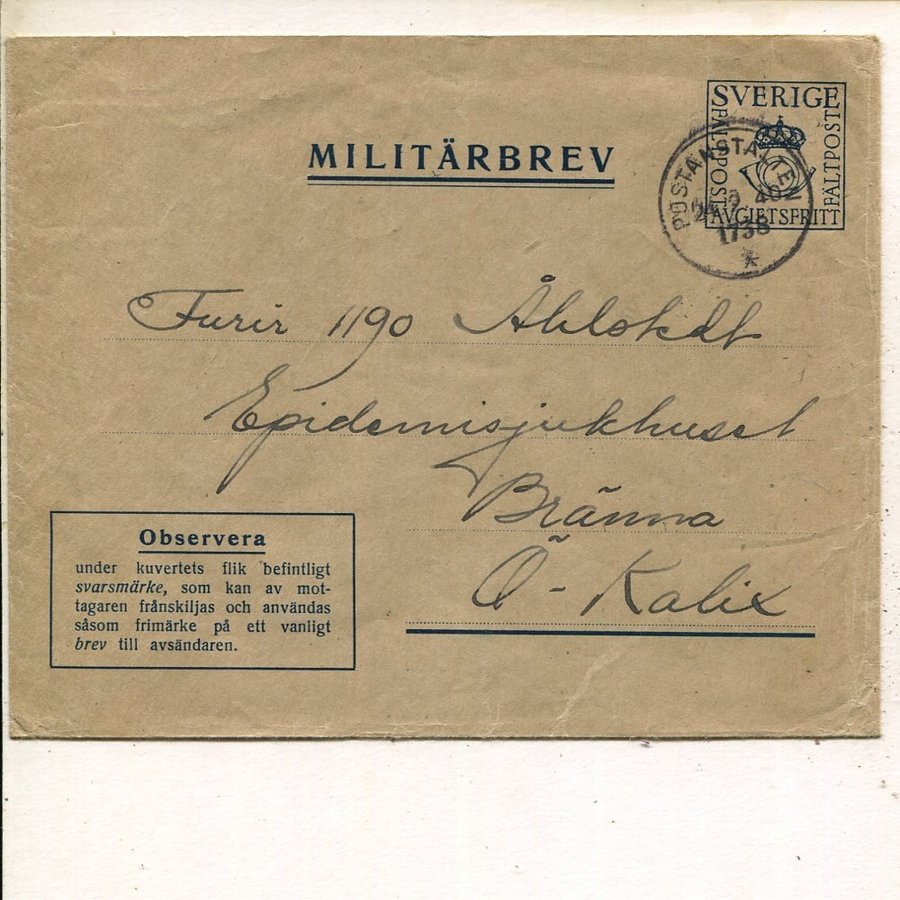 MILITÄRBREV
SVERIGE
FÄLTPOST
FÄLTPOST
AVGIFTSFRITT
POSTANSTALTEN
1738
Furir 1190 Åhlstedt
Epidemisjukhuset
Bränna
Ö-Kalix
Observera
under kuvertets flik befintligt
svarsmärke, som kan av mot-
tagaren frånskiljas och användas
såsom frimärke på ett vanligt
brev till avsändaren.